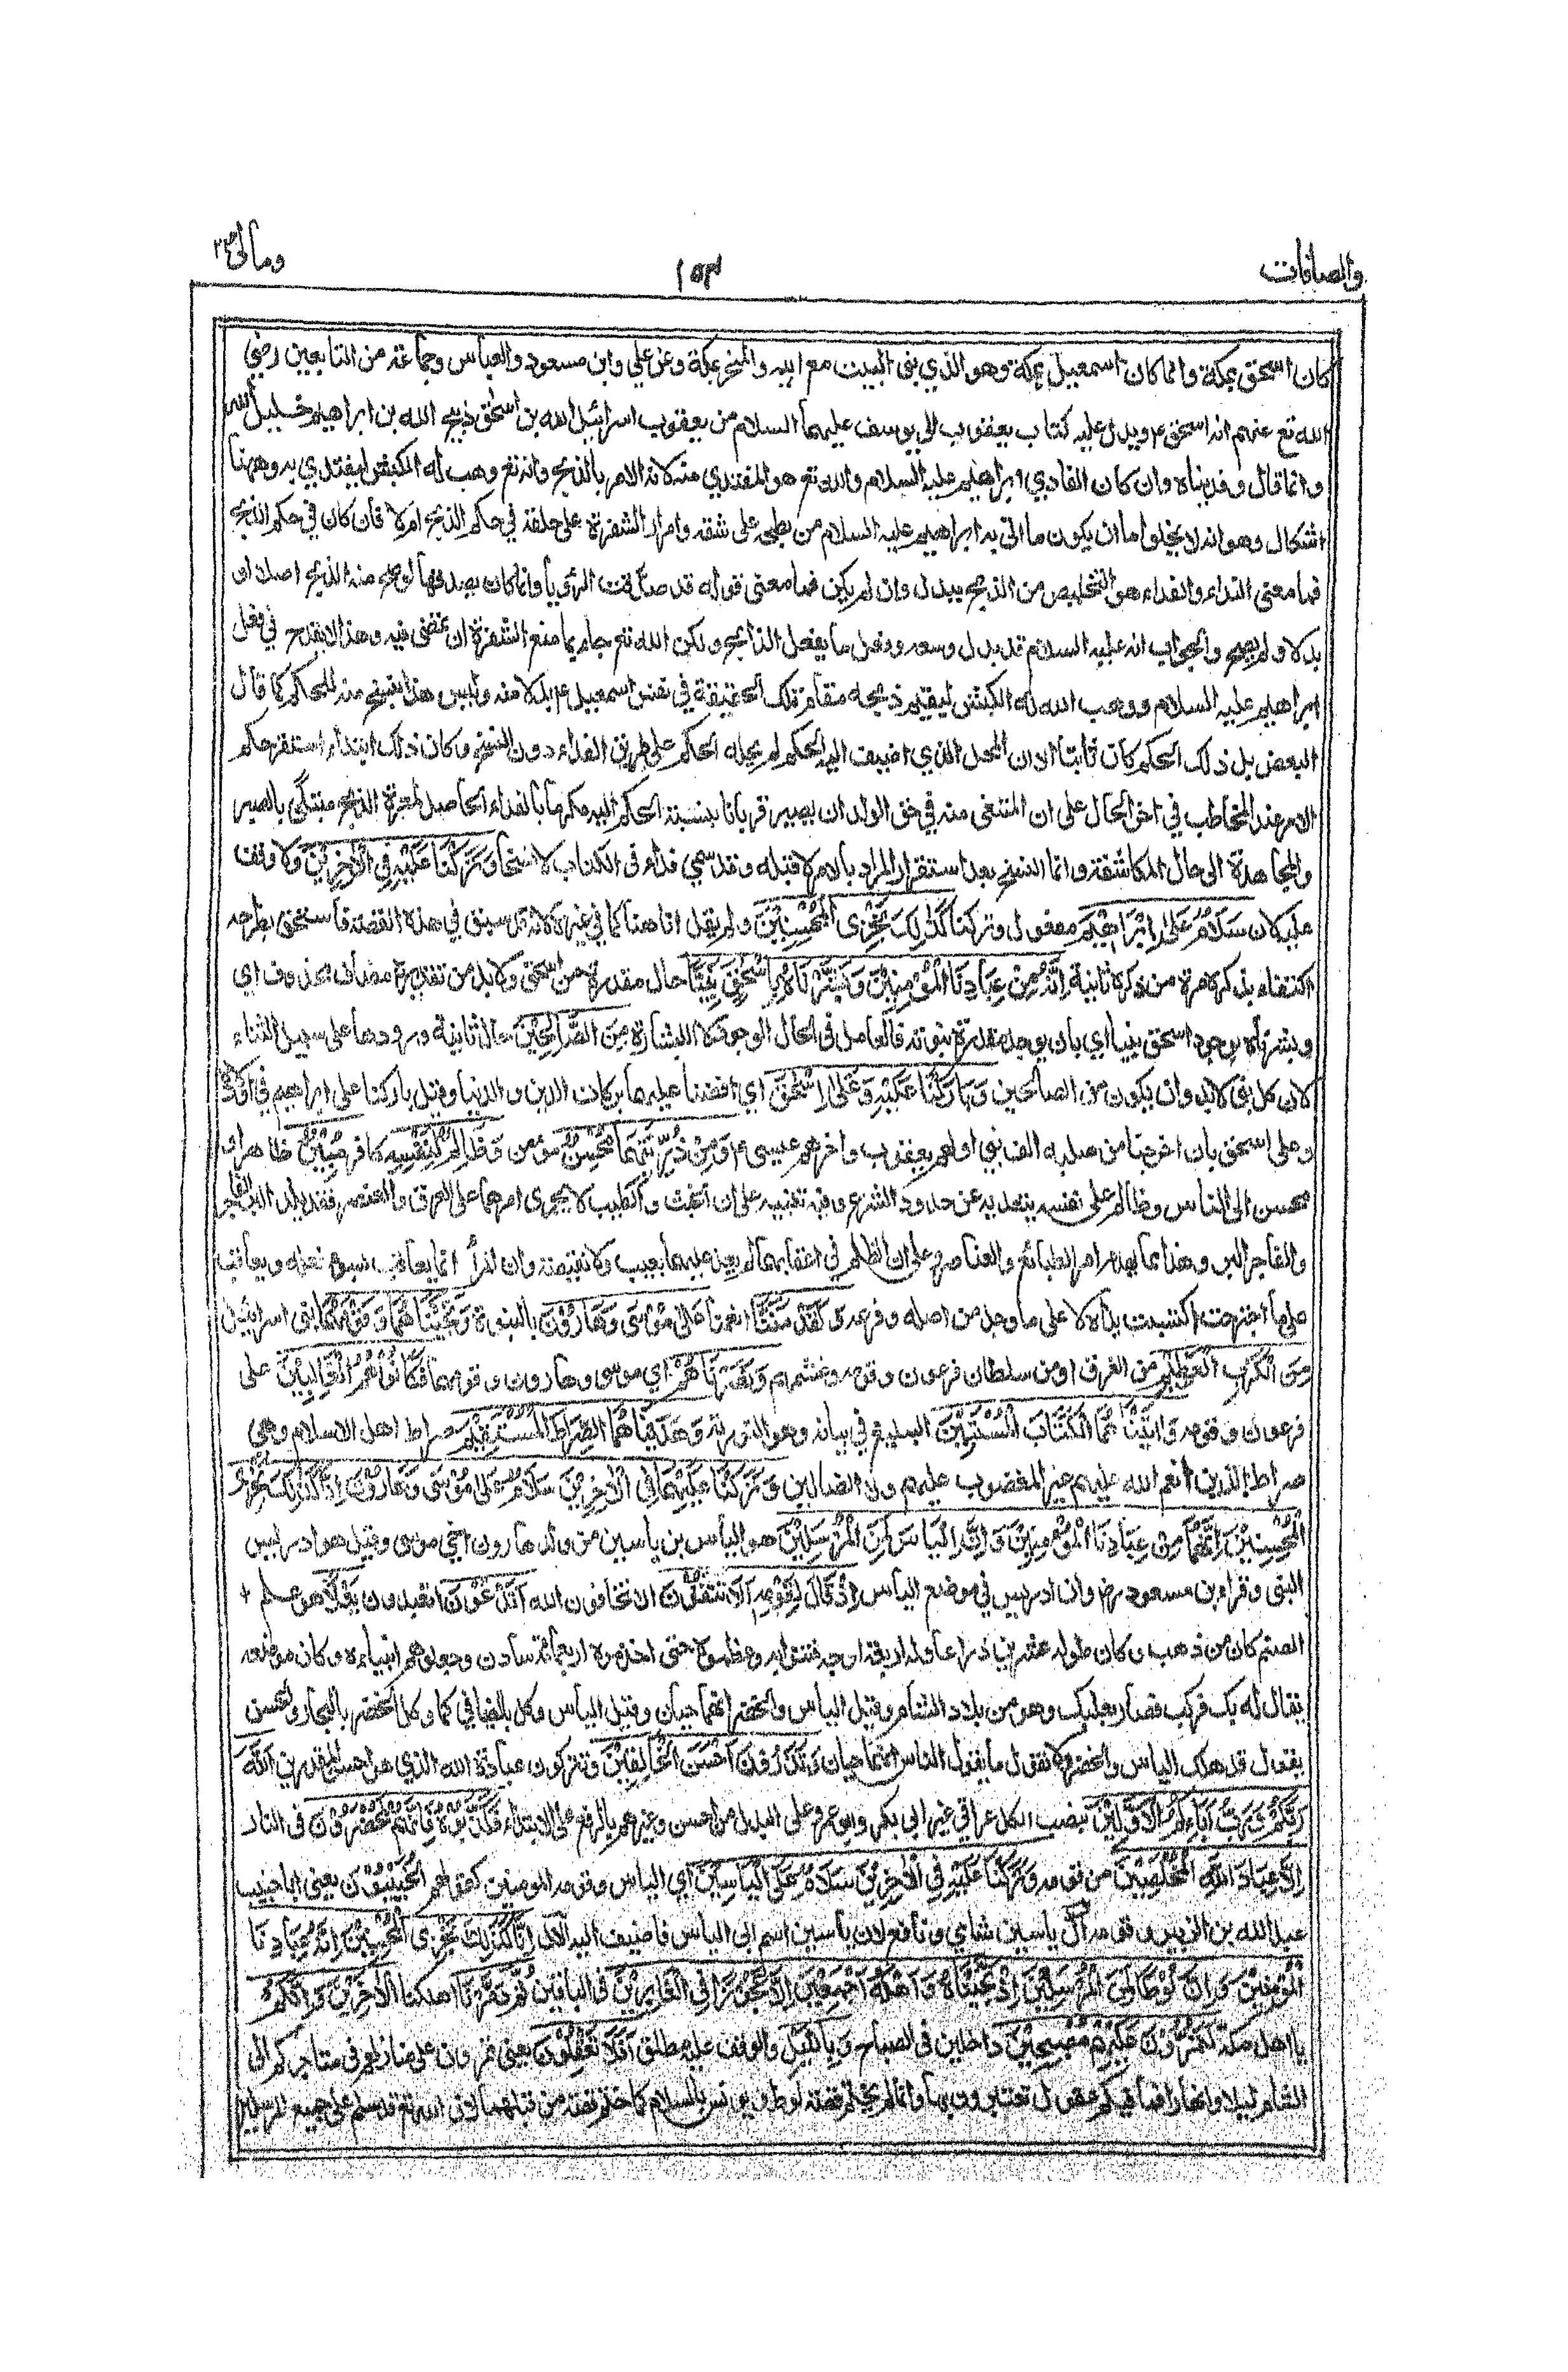 والصافات
١٥٣
ومالى ٢٣
كان اسحق بمكة وانما كان اسمعيل بمكة وهو الذي بنى البيت مع ابيه والمنحر بمكة وعن علي وابن مسعود والعباس وجماعة من التابعين رضي
الله تع عنهم انه اسحق ع ويدل عليه كتاب يعقوب الى يوسف عليهما السلام من يعقوب اسرائيل الله بن اسحق ذبيح الله بن ابراهيم خليل الله
وانما قال وفديناه وان كان الفادي ابراهيم عليه السلام والله تع هو المفتدي منه لانه الامر بالذبح وانه تع وهب له الكبش ليفتدي به وههنا
اشكال وهو انه لا يخلو اما ان يكون ما اتى به ابراهيم عليه السلام من بطحه على شقه وامرار الشفرة على حلقه في حكم الذبح ام لا فان كان في حكم الذبح
فما معنى الفداء والفداء هو التخليص من الذبح ببدل وان لم يكن فما معنى قوله قد صدقت الرؤيا وانما كان يصدقها لو صح منه الذبح اصلا او
بدلا ولم يصح والجواب انه عليه السلام قد بذل وسعه وفعل ما يفعل الذابح ولكن الله تع جاء بما منع الشفرة ان تمضى فيه وهذا لا يقدح في فعل
ابراهيم عليه السلام ووهب الله له الكبش ليقيم ذبحه مقام تلك الحقيقة في نفس اسمعيل ع بدلا منه وليس هذا بنسخ منه للحكم كما قال
البعض بل ذلك الحكم كان ثابتا الا ان المحل الذي اضيف اليه الحكم لم يحله الحكم على طريق الفداء دون النسخ وكان ذلك ابتلاء استقر حكم
الامر عند المخاطب في اخر الحال على ان المبتغى منه في حق الولد ان يصير قربانا بنسبة الحكم اليه مكرما بالفداء الحاصل لمعرة الذبح مبتلى بالصبر
والمجاهدة الى حال المكاشفة وانما النسخ بعد استقرار المراد بالامر لا قبله وقد سمي فداء فى الكتاب لا نسخا وَتَرَكْنَا عَلَيْهِ فِي الْاٰخِرِيْنَ ولا وقف
عليه لان سَلَامٌ عَلٰى اِبْرَاهِيْمَ مفعول وتركنا كَذٰلِكَ نَجْزِى الْمُحْسِنِيْنَ ولم يقل انا هنا كما في غيره لانه قد سبق في هذه القصة فاستخف بطرحه
اكتفاء بذكره مرة من ذكره ثانية اِنَّهٗ مِنْ عِبَادِنَا الْمُؤْمِنِيْنَ وَبَشَّرْنَاهُ بِاِسْحٰقَ نَبِيًّا حال مقدرة من اسحق ولا بد من تقدير مضاف محذوف اي
وبشرناه بوجود اسحق نبيا اي بان يوجد مقدرة نبوته فالعامل فى الحال الوجود لا البشارة مِنَ الصَّالِحِيْنَ حال ثانية وورودها على سبيل الثناء
لان كل نبى لابد وان يكون من الصالحين وَبَارَكْنَا عَلَيْهِ وَعَلٰى اِسْحٰقَ اي افضنا عليهما بركات الدين والدنيا وقيل باركنا على ابراهيم في اولاده
وعلى اسحق بان اخرجنا من صلبه الف نبي اولهم يعقوب واخرهم عيسى ع وَمِنْ ذُرِّيَّتِهِمَا مُحْسِنٌ مؤمن وَظَالِمٌ لِنَفْسِهٖ كافر مُبِيْنٌ ظاهر او
محسن الى الناس وظالم على نفسه بتعديه عن حدود الشرع وفيه تنبيه على ان الخبث والطيب لا يجرى امرهما على العرق والعنصر فقد يلد البر الفاجر
والفاجر البر وهذا مما يهدم امر الطبائع والعناصر وعلى ان الظلم في اعقابهما لم يعد عليهما بعيب ولا نقيصة وان المرء انما يعاقب بسوء فعله ويعاقب
على ما اجترحت اكتسبت يداه لا على ما وجد من اصله وفرعه وَلَقَدْ مَنَنَّا انعمنا عَلٰى مُوْسٰى وَهَارُوْنَ بالنبوة وَنَجَّيْنَاهُمَا وَقَوْمَهُمَا بنى اسرائيل
مِنَ الْكَرْبِ الْعَظِيْمِ من الغرق او من سلطان فرعون وقومه وغشمهم وَنَصَرْنَاهُمْ اي موسى وهارون وقومهما فَكَانُوْا هُمُ الْغَالِبِيْنَ على
فرعون وقومه وَاٰتَيْنَاهُمَا الْكِتَابَ الْمُسْتَبِيْنَ البليغ في بيانه وهو التورية وَهَدَيْنَاهُمَا الصِّرَاطَ الْمُسْتَقِيْمَ صراط اهل الاسلام وهي
صراط الذين انعم الله عليهم غير المغضوب عليهم ولا الضالين وَتَرَكْنَا عَلَيْهِمَا فِى الْاٰخِرِيْنَ سَلَامٌ عَلٰى مُوْسٰى وَهَارُوْنَ اِنَّا كَذٰلِكَ نَجْزِى
الْمُحْسِنِيْنَ اِنَّهُمَا مِنْ عِبَادِنَا الْمُؤْمِنِيْنَ وَاِنَّ اِلْيَاسَ لَمِنَ الْمُرْسَلِيْنَ هو الياس بن ياسين من ولد هارون اخي موسى وقيل هو ادريس
النبى وقراء ابن مسعود رض وان ادريس في موضع الياس اِذْ قَالَ لِقَوْمِهٖ اَلَا تَتَّقُوْنَ الا تخافون الله اَتَدْعُوْنَ اتعبدون بَعْلًا هو علم
الصنم كان من ذهب وكان طوله عشرين ذراعا وله اربعة اوجه فتنوا به وعظموه حتى اخدموه اربعمائة سادن وجعلوهم انبياءه وكان موضعه
يقال له بك فركب فصار بعلبك وهو من بلاد الشام وقيل الياس والخضر انهما حيان وقيل الياس وكل بالفيافي كما وكل الخضر بالبحار والحسن
يقول قد هلك الياس والخضر ولا نقول ما يقول الناس انهما حيان وَتَذَرُوْنَ اَحْسَنَ الْخَالِقِيْنَ وتتركون عبادة الله الذي هو احسن المقدرين اَللّٰهَ
رَبَّكُمْ وَرَبَّ اٰبَاءِكُمُ الْاَوَّلِيْنَ بنصب الكل عراقي غير ابي بكر وابو عمرو على البدل من احسن وغيرهم بالرفع على الابتداء فَكَذَّبُوْهُ فَاِنَّهُمْ لَمُحْضَرُوْنَ فى النار
اِلَّا عِبَادَ اللّٰهِ الْمُخْلَصِيْنَ من قومه وَتَرَكْنَا عَلَيْهِ فِى الْاٰخِرِيْنَ سَلَامٌ عَلٰى اِلْيَاسِيْنَ اي الياس وقومه المؤمنين كقولهم الخبيبون يعنى ابا خبيب
عبد الله بن الزبير وقومه آل ياسين شامي ونافع لان ياسين اسم ابى الياس فاضيف اليه الآل اِنَّا كَذٰلِكَ نَجْزِى الْمُحْسِنِيْنَ اِنَّهٗ مِنْ عِبَادِنَا
الْمُؤْمِنِيْنَ وَاِنَّ لُوْطًا لَمِنَ الْمُرْسَلِيْنَ اِذْ نَجَّيْنَاهُ وَاَهْلَهٗ اَجْمَعِيْنَ اِلَّا عَجُوْزًا فِى الْغَابِرِيْنَ فى الباقين ثُمَّ دَمَّرْنَا اهلكنا الْاٰخَرِيْنَ وَاِنَّكُمْ
يا اهل مكة لَتَمُرُّوْنَ عَلَيْهِمْ مُصْبِحِيْنَ داخلين فى الصباح وَبِالَّيْلِ والوقف عليه مطلق اَفَلَا تَعْقِلُوْنَ يعنى تمرون على منازلهم فى متاجركم الى
الشام ليلا ونهارا فما فيكم عقول تعتبرون بها وانما لم يختم قصة لوط ويونس بالسلام كما ختم قصة من قبلهما لان الله تع قد سلم على جميع المرسلين